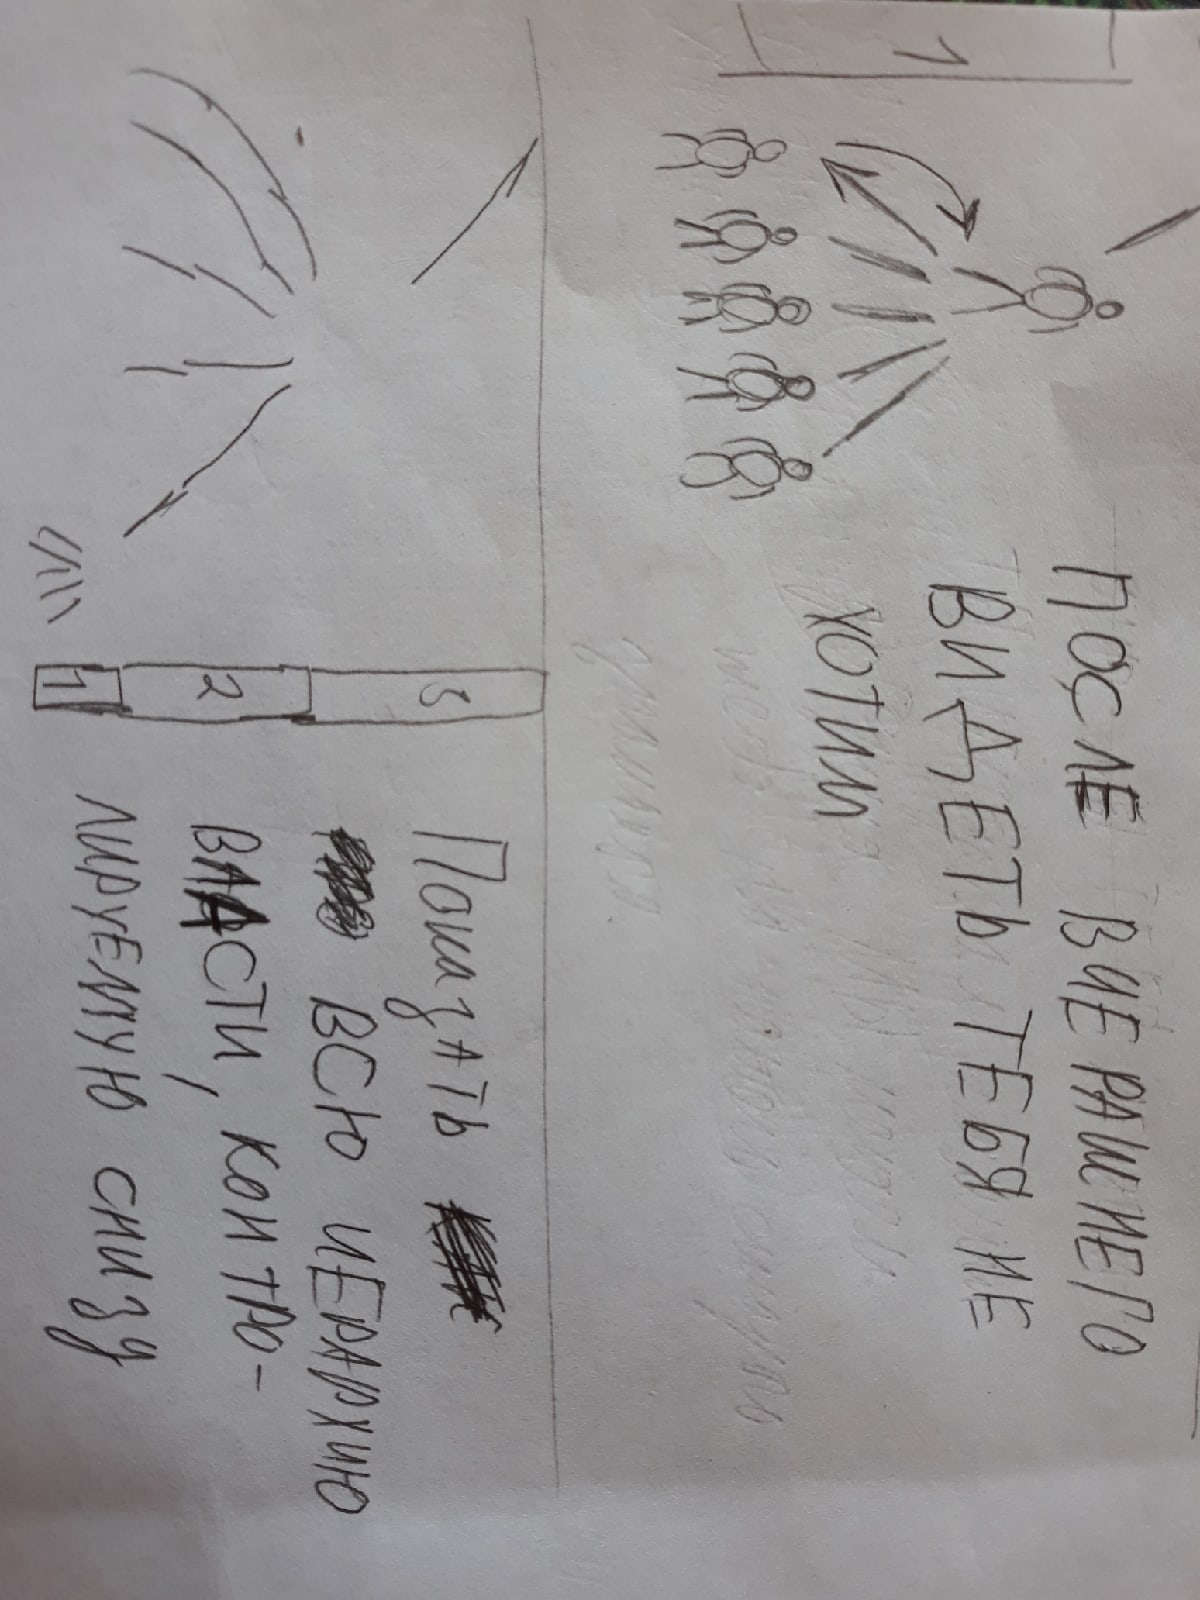 1
ПОСЛЕ ВЧЕРАШНЕГО
ВИДЕТЬ ТЕБЯ НЕ
ХОТИМ
3
2
1
Показать
ВСЮ ИЕРАРХИЮ
ВЛАСТИ, КОНТРО-
ЛИРУЕМУЮ СНИЗУ